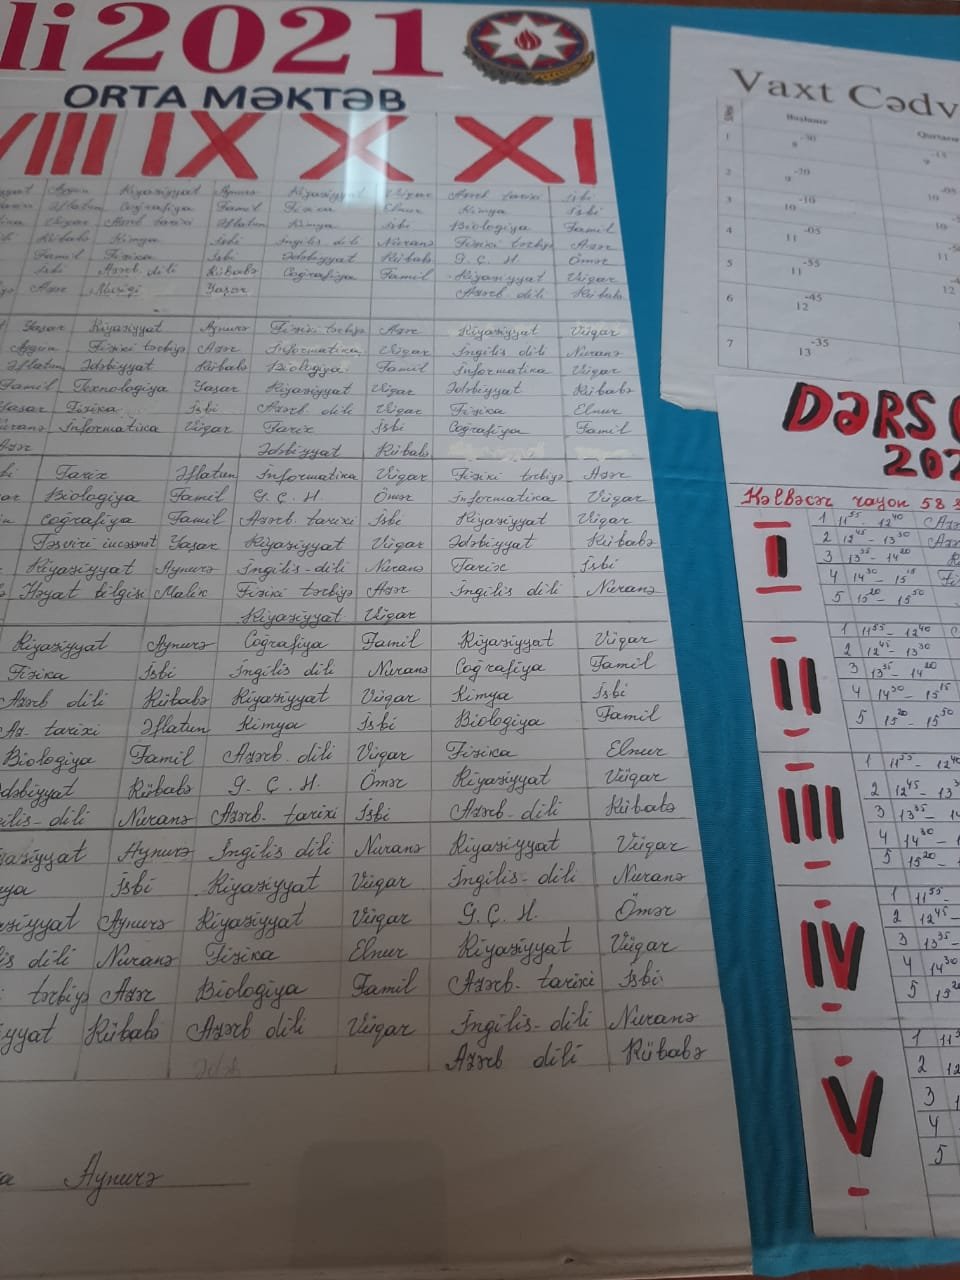 li 2021
ORTA MƏKTƏB
VIII IX X XI
Aygün Riyaziyyat Aynurə Riyaziyyat Vüqar Azərb tarixi İsbi
Əflatun Coğrafiya Famil Fizika Elnur Kimya İsbi
Vüqar Azərb tarixi Əflatun Kimya İsbi Biologiya Famil
Rübabə Kimya İsbi İngilis dili Nuranə Fiziki tərbiyə Azər
Famil Fizika İsbi Ədəbiyyat Rübabə G. Ç. H. Ömər
İsbi Azərb. dili Rübabə Coğrafiya Famil Riyaziyyat Vüqar
Azər Musiqi Yaşar Azərb dili Rübabə
Yaşar Riyaziyyat Aynurə Fiziki tərbiyə Azər Riyaziyyat Vüqar
Aygün Fiziki tərbiyə Azər İnformatika Vüqar İngilis dili Nuranə
Əflatun Ədəbiyyat Rübabə Biologiya Famil İnformatika Vüqar
Famil Texnologiya Yaşar Riyaziyyat Vüqar Ədəbiyyat Rübabə
Yaşar Fizika İsbi Azərb dili Vüqar Fizika Elnur
Nuranə İnformatika Vüqar Tarix İsbi Coğrafiya Famil
Azər Ədəbiyyat Rübabə
bi Tarix Əflatun İnformatika Vüqar Fiziki tərbiyə Azər
ar Biologiya Famil G. Ç. H. Ömər İnformatika Vüqar
in Coğrafiya Famil Azərb. tarixi İsbi Riyaziyyat Vüqar
Təsviri incəsənət Yaşar Riyaziyyat Vüqar Ədəbiyyat Rübabə
Riyaziyyat Aynurə İngilis-dili Nuranə Tarix İsbi
Həyat bilgisi Malik Fiziki tərbiyə Azər İngilis dili Nuranə
Riyaziyyat Vüqar
Riyaziyyat Aynurə Coğrafiya Famil Riyaziyyat Vüqar
Fizika İsbi İngilis dili Nuranə Coğrafiya Famil
Azərb dili Rübabə Riyaziyyat Vüqar Kimya İsbi
Az. tarixi Əflatun Kimya İsbi Biologiya Famil
Biologiya Famil Azərb. dili Vüqar Fizika Elnur
Ədəbiyyat Rübabə G. Ç. H. Ömər Riyaziyyat Vüqar
gilis-dili Nuranə Azərb- tarixi İsbi Azərb- dili Rübabə
yaziyyat Aynurə İngilis dili Nuranə Riyaziyyat Vüqar
ya İsbi Riyaziyyat Vüqar İngilis-dili Nuranə
aziyyat Aynurə Riyaziyyat Vüqar G. Ç. H. Ömər
is dili Nuranə Fizika Elnur Riyaziyyat Vüqar
tərbiyə Azər Biologiya Famil Azərb- tarixi İsbi
iyyat Rübabə Azərb dili Vüqar İngilis-dili Nuranə
Ədəb Azərb dili Rübabə
Aynurə
Vaxt Cədv
Başlanır Qurtarır
1 8-30 9-15
2 9-20 10-05
3 10-10
4 11-05
5 11-55
6 12-45
7 13-35
DƏRS
202
Kəlbəcər rayon 58
I
1 11 55 - 12 40
2 12 45 - 13 30
3 13 35 - 14 20
4 14 30 - 15 15
5 15 20 - 15 50
II
1 11 55 - 12 40
2 12 45 - 13 30
3 13 35 - 14 20
4 14 30 - 15 15
5 15 20 - 15 50
III
1 11 55 - 12 40
2 12 45 - 13 3
3 13 35 - 14
4 14 30 - 1
5 15 20 -
IV
1 11 55 -
2 12 45 -
3 13 35 -
4 14 30
5 15 20
V
1 11 5
2 12
3 13
4
5